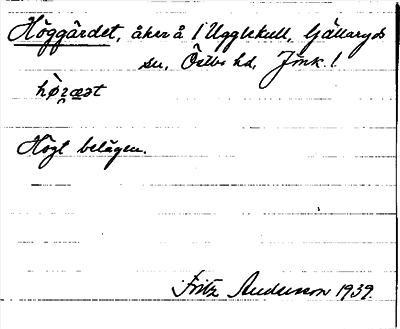 Höggärdet, åker å 1 Ugglekull, Gällaryds
sn, Östbo hd, Jmk. l.
Högt belägen.
Fritz Andersson 1939.